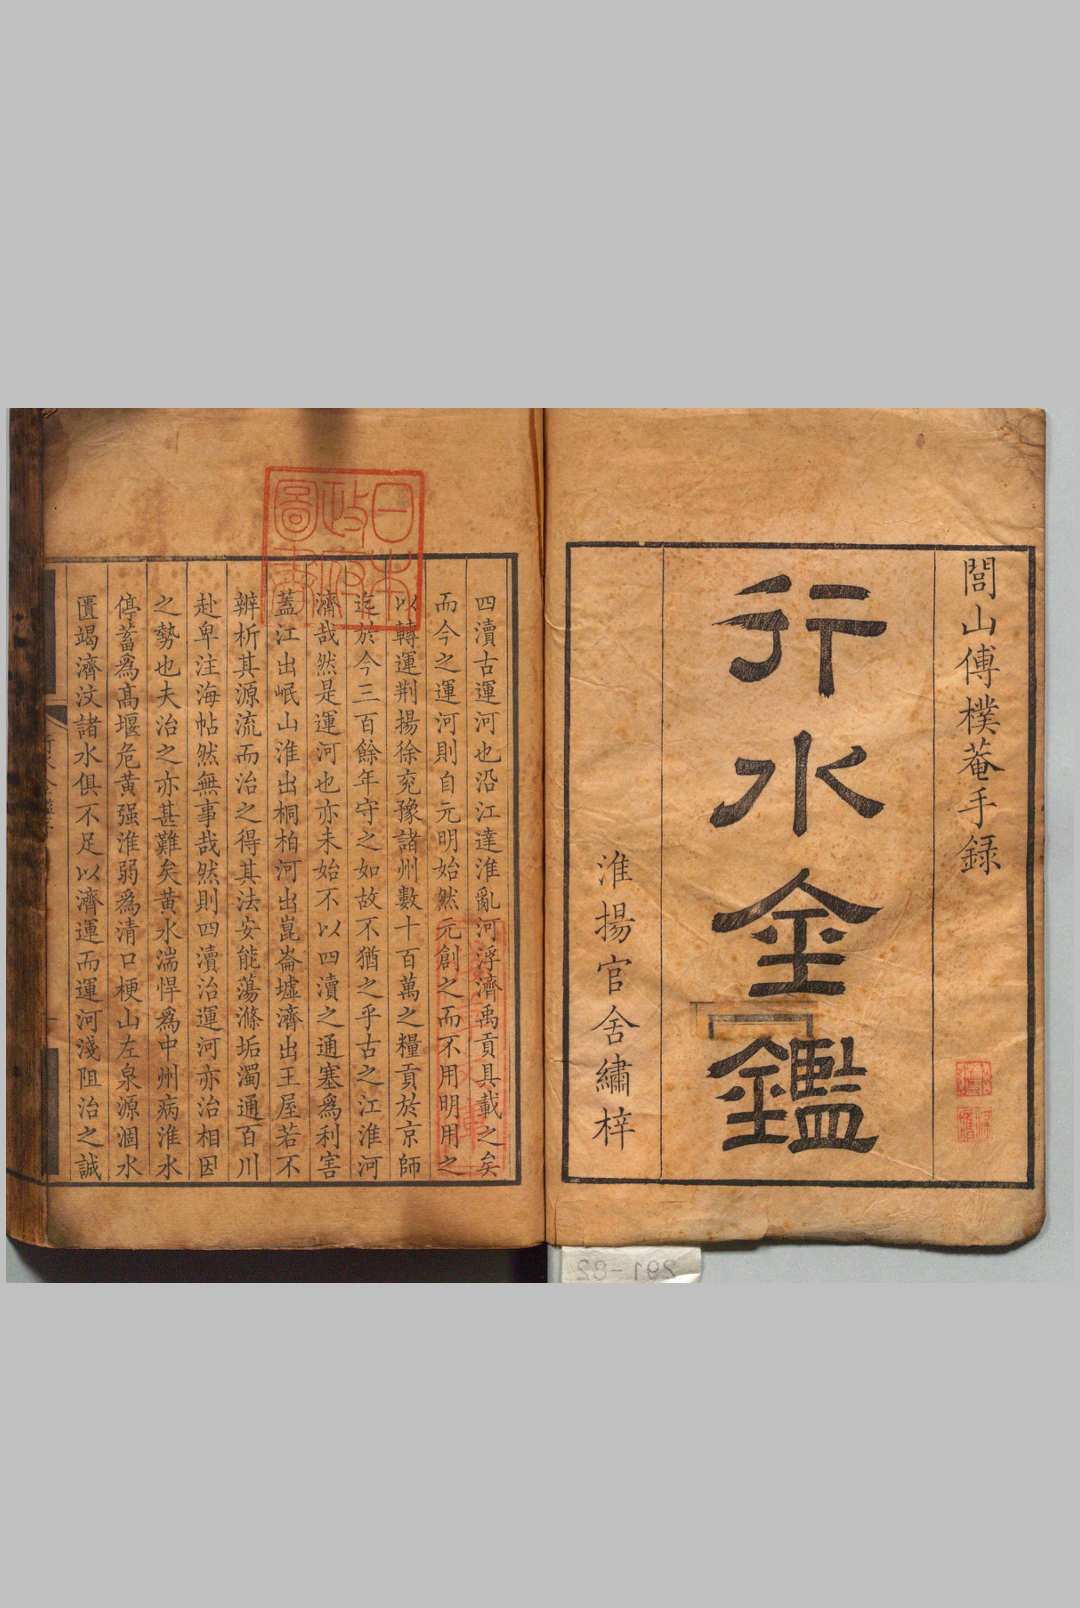 閭山傅樸菴手録
行水金鑑
淮揚官舍繡梓
四瀆古運河也沿江達淮亂河浮濟禹貢具載之矣
而今之運河則自元明始然元創之而不用明用之
以轉運荆揚徐兖豫諸州數十百萬之糧貢於京師
迄於今三百餘年守之如故不猶之乎古之江淮河
濟哉然是運河也亦未始不以四瀆之通塞爲利害
蓋江出岷山淮出桐柏河出崑崙墟濟出王屋若不
辨析其源流而治之得其法安能蕩滌垢濁通百川
赴卑注海帖然無事哉然則四瀆治運河亦治相因
之勢也夫治之亦甚難矣黃水湍悍爲中州病淮水
停蓄爲髙堰危黃强淮弱爲清口梗山左泉源涸水
匱竭濟汶諸水俱不足以濟運而運河淺阻治之誠
日本政府圖書
291-82